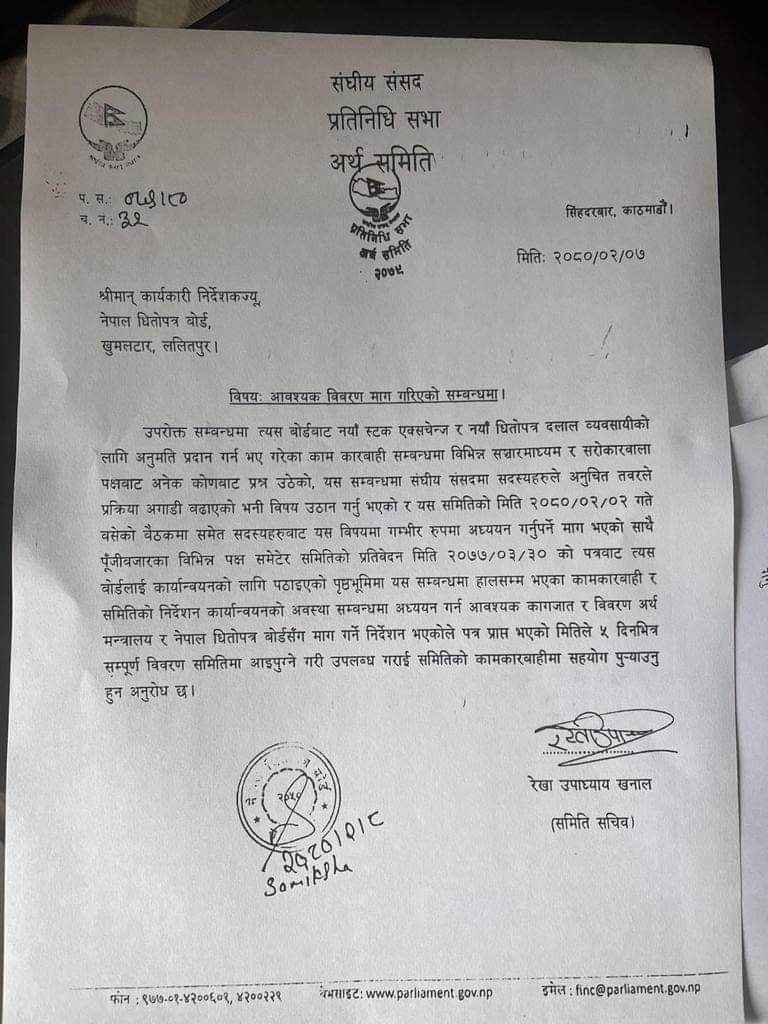 संघीय संसद
प्रतिनिधि सभा
अर्थ समिति
प्रतिनिधि सभा
अर्थ समिति
२०७९
प. स.:
च. न.: ३२
सिंहदरबार, काठमाडौं।
मितिः २०८०/०२/०७
श्रीमान् कार्यकारी निर्देशकज्यू,
नेपाल धितोपत्र बोर्ड,
खुमलटार, ललितपुर।
विषयः आवश्यक विवरण माग गरिएको सम्बन्धमा।
उपरोक्त सम्बन्धमा त्यस बोर्डबाट नयाँ स्टक एक्सचेन्ज र नयाँ धितोपत्र दलाल व्यवसायीको
लागि अनुमति प्रदान गर्न भए गरेका काम कारबाही सम्बन्धमा विभिन्न सञ्चारमाध्यम र सरोकारवाला
पक्षबाट अनेक कोणबाट प्रश्न उठेको, यस सम्बन्धमा संघीय संसदमा सदस्यहरुले अनुचित तवरले
प्रक्रिया अगाडी वढाएको भनी विषय उठान गर्नु भएको र यस समितिको मिति २०८०/०२/०२ गते
वसेको बैठकमा समेत सदस्यहरुवाट यस विषयमा गम्भीर रुपमा अध्ययन गर्नुपर्ने माग भएको साथै
पूँजीबजारका विभिन्न पक्ष समेटेर समितिको प्रतिवेदन मिति २०७७/०३/३० को पत्रवाट त्यस
बोर्डलाई कार्यान्वयनको लागि पठाइएको पृष्ठभूमिमा यस सम्बन्धमा हालसम्म भएका कामकारबाही र
समितिको निर्देशन कार्यान्वयनको अवस्था सम्बन्धमा अध्ययन गर्न आवश्यक कागजात र विवरण अर्थ
मन्त्रालय र नेपाल धितोपत्र बोर्डसँग माग गर्ने निर्देशन भएकोले पत्र प्राप्त भएको मितिले ५ दिनभित्र
सम्पूर्ण विवरण समितिमा आइपुग्ने गरी उपलब्ध गराई समितिको कामकारबाहीमा सहयोग पुर्‍याउनु
हुन अनुरोध छ।
रेखा उपाध्याय खनाल
(समिति सचिव)
२०८०।२।८
Samiksha
फोन : ९७७-०१-४२००६०१, ४२००२२९ वेभसाइट: www.parliament.gov.np इमेल : finc@parliament.gov.np